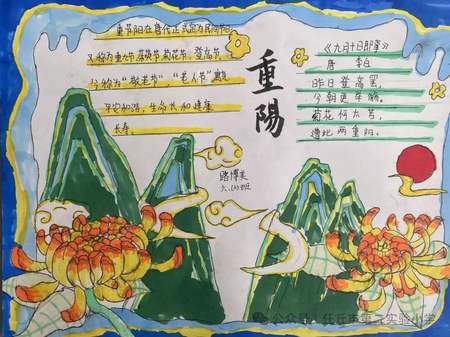 重阳节在唐代正式定为民间节
又称为重九节、茱萸节、菊花节、登高节
今称为"敬老节""老人节"寓意
平安和谐,生命长久健康
长寿
重陽
路博美
六.(4)班
《九月十日即事》
唐 李白
昨日登高罢,
今朝更举觞。
菊花何太苦,
遭此两重阳。
公众号·任丘市第二实验小学